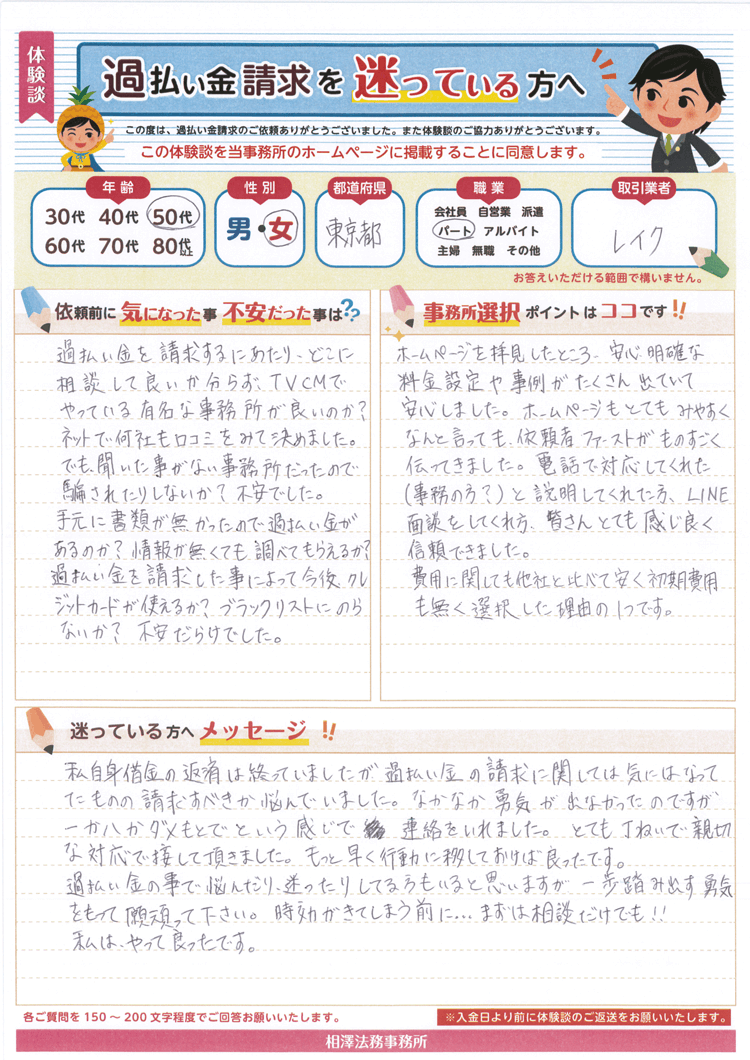 体験談
過払い金請求を迷っている方へ
この度は、過払い金請求のご依頼ありがとうございました。また体験談のご協力ありがとうございます。
この体験談を当事務所のホームページに掲載することに同意します。
年齢
30代 40代 50代
60代 70代 80代以上
性別
男・女
都道府県
東京都
職業
会社員 自営業 派遣
パート アルバイト
主婦 無職 その他
取引業者
レイク
お答えいただける範囲で構いません。
依頼前に気になった事 不安だった事は??
過払い金を請求するにあたり、どこに
相談して良いか分らず、TVCMで
やっている有名な事務所が良いのか?
ネットで何社も口コミをみて決めました。
でも、聞いた事がない事務所だったので
騙されたりしないか? 不安でした。
手元に書類が無かったので過払い金が
あるのか? 情報が無くても調べてもらえるか?
過払い金を請求した事によって今後、クレ
ジットカードが使えるか? ブラックリストにのら
ないか? 不安だらけでした。
事務所選択ポイントはココです!!
ホームページを拝見したところ、安心明確な
料金設定や事例がたくさん出ていて
安心しました。ホームページもとてもみやすく
なんと言っても、依頼者ファーストがものすごく
伝ってきました。電話で対応してくれた
(事務の方?)と説明してくれた方、LINE
面談をしてくれ方、皆さんとても感じ良く
信頼できました。
費用に関しても他社と比べて安く初期費用
も無く選択した理由の1つです。
迷っている方へメッセージ!!
私自身借金の返済は終っていましたが過払い金の請求に関しては気にはなって
たものの請求すべきか悩んでいました。なかなか勇気が出なかったのですが
一か八かダメもとでという感じで 連絡をいれました。とても丁ねいで親切
な対応で接して頂きました。もっと早く行動に移しておけば良ったです。
過払い金の事で悩んだり、迷ったりしてる方もいると思いますが一歩踏み出す勇気
をもって願頑って下さい。時効がきてしまう前に…まずは相談だけでも!!
私は、やって良ったです。
各ご質問を150〜200文字程度でご回答お願いいたします。
※入金日より前に体験談のご返送をお願いいたします。
相澤法務事務所